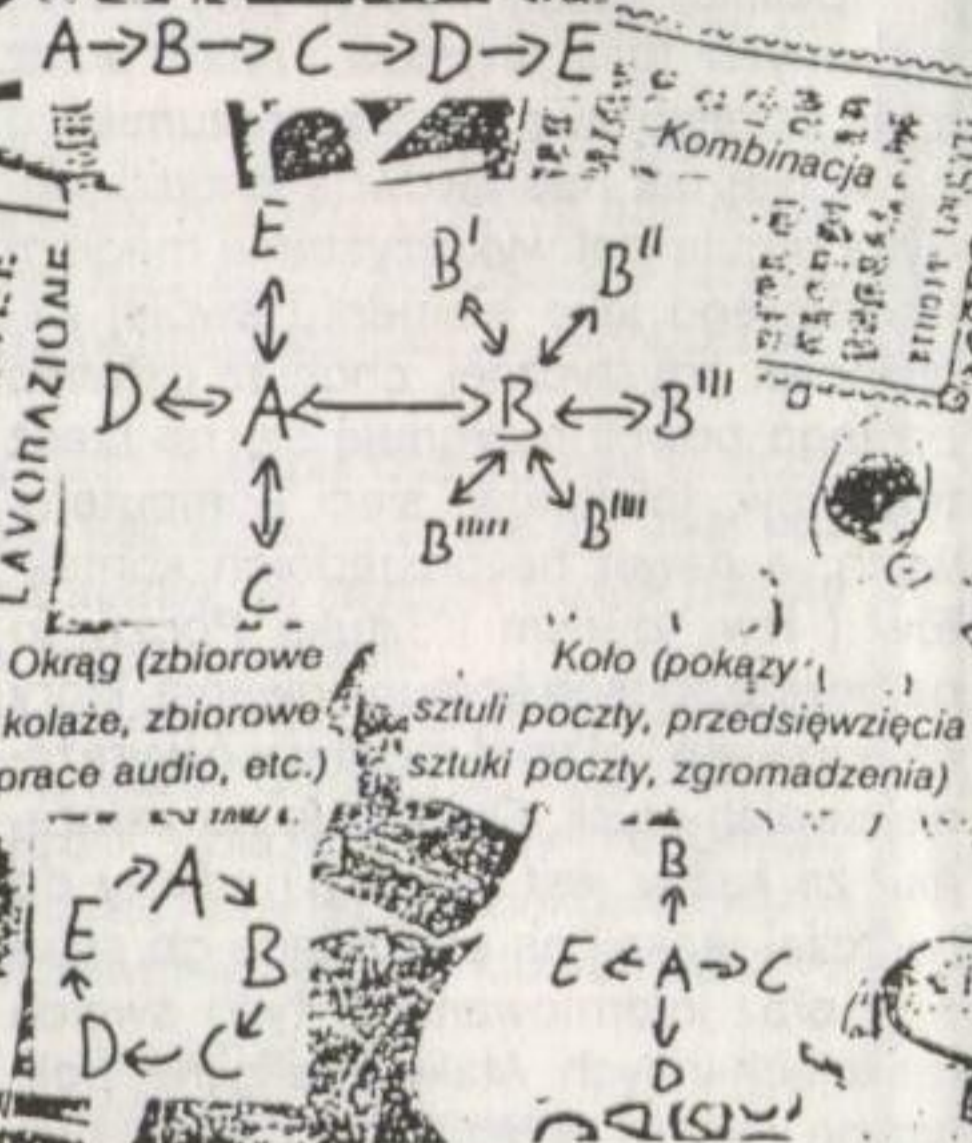 A→B→C→D→E
Kombinacja
E B' B''
D ↔ A ↔ B ↔ B'''
B''''' B''''
C
LAVORAZIONE
Okrąg (zbiorowe
kolaże, zbiorowe
prace audio, etc.)
Koło (pokazy
sztuli poczty, przedsięwzięcia
sztuki poczty, zgromadzenia)
A
E B
D ← C
B
E ← A → C
D